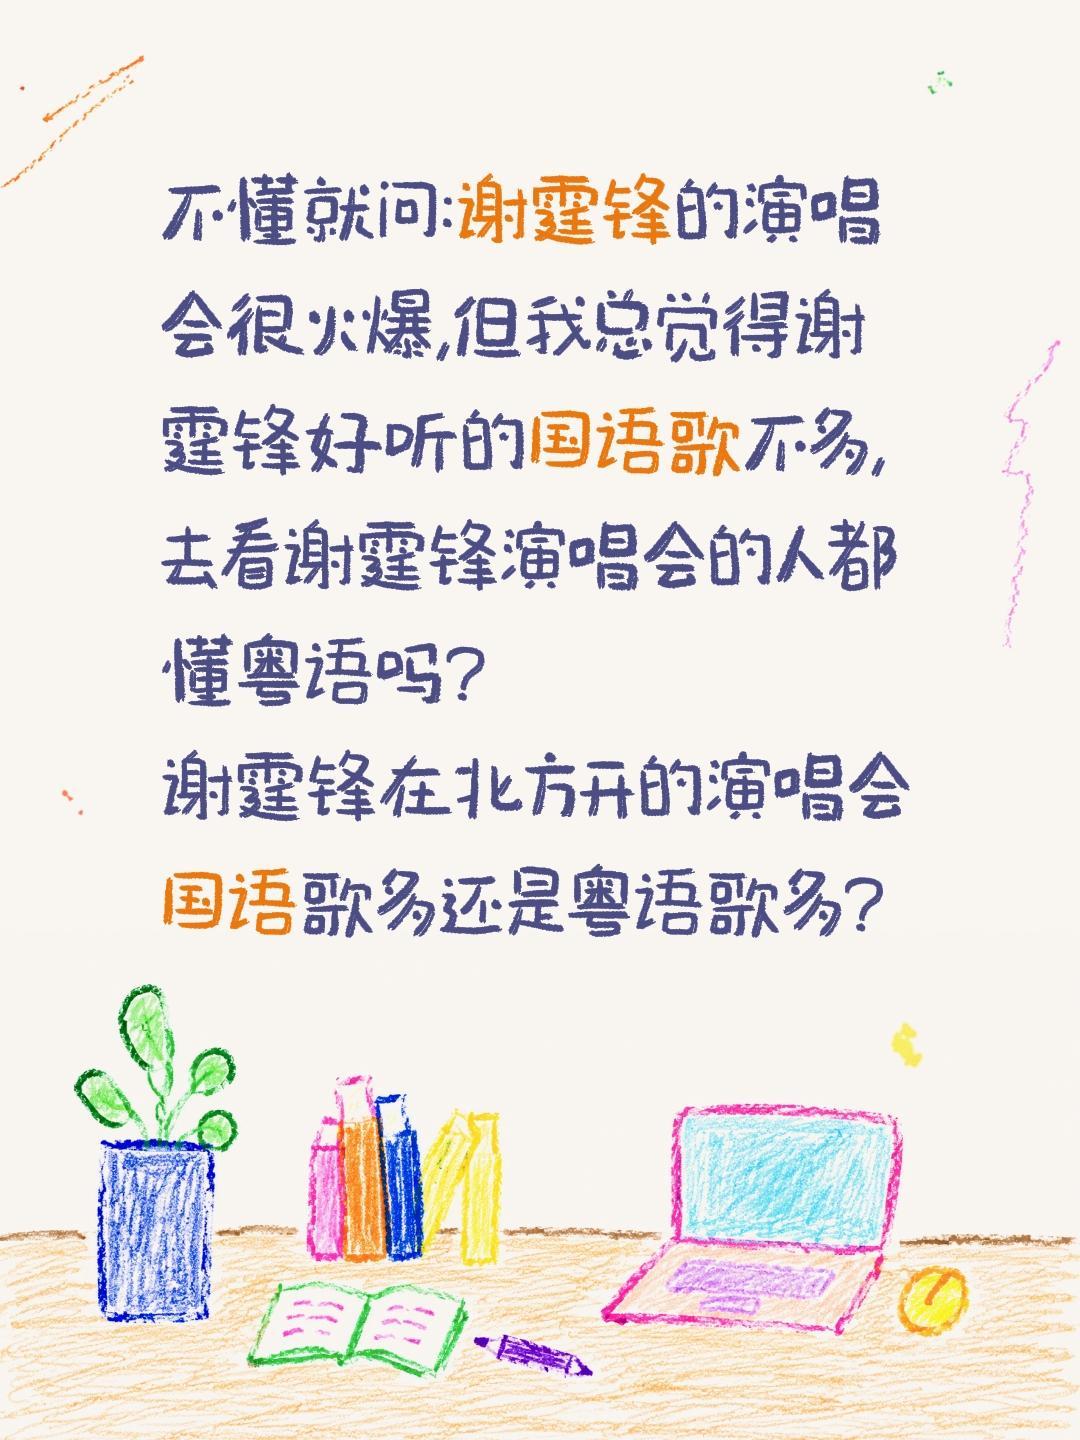 不懂就问:谢霆锋的演唱
会很火爆,但我总觉得谢
霆锋好听的国语歌不多,
去看谢霆锋演唱会的人都
懂粤语吗?
谢霆锋在北方开的演唱会
国语歌多还是粤语歌多?